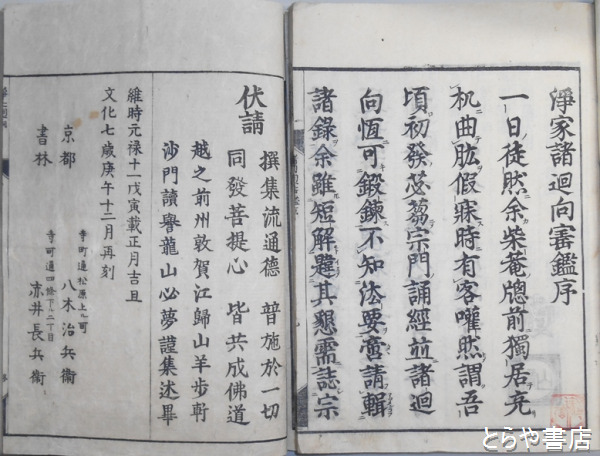 淨家諸迴向審鑑序
一日徒然余柴菴牕前獨居充
机曲肱假寐時有客嚾然謂吾
頃初發苾蒭宗門誦經並諸迴
向恆可鍛鍊不知法要壼請輯
諸錄余雖短解韙其懇需誌宗
伏請
撰集流通德 普施於一切
同發菩提心 皆共成佛道
越之前州敦賀江歸山羊步軒
沙門讀譽龍山必夢謹集述畢
維時元祿十一戊寅載正月吉旦
文化七歲庚午十二月再刻
京都 寺町通松原上ル町 八木治兵衞
書林 寺町通四條下ル二丁目 赤井長兵衞
とらや書店